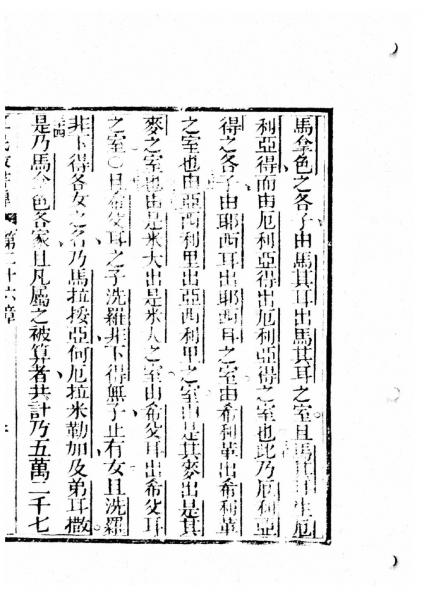 馬拿色之各子由馬其耳出馬其耳之室且馬其耳生厄
利亞得而由厄利亞得出厄利亞得之室也此乃厄利亞
得之各子由耶西耳出耶西耳之室由希利革出希利革
之室也由亞西利里出亞西利里之室由是其麥出是其
麥之室也由是米大出是米大之室由希弗耳出希弗耳
之室〇且希弗耳之子洗羅非下得無子止有女且洗羅
非下得各女之名乃馬拉挼亞何厄拉米勒加及弟耳撒
三四
是乃馬拿色各家且凡屬之被算者共計乃五萬二千七
第二十六章